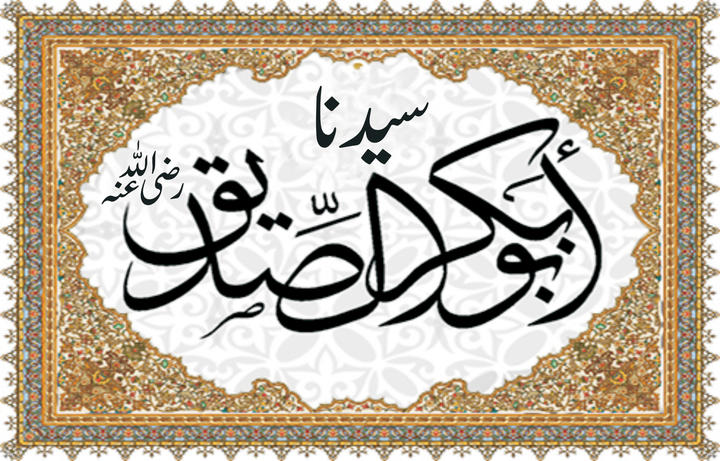 سيدنا
أبو بكر الصّديق
رضی اللہ عنہ